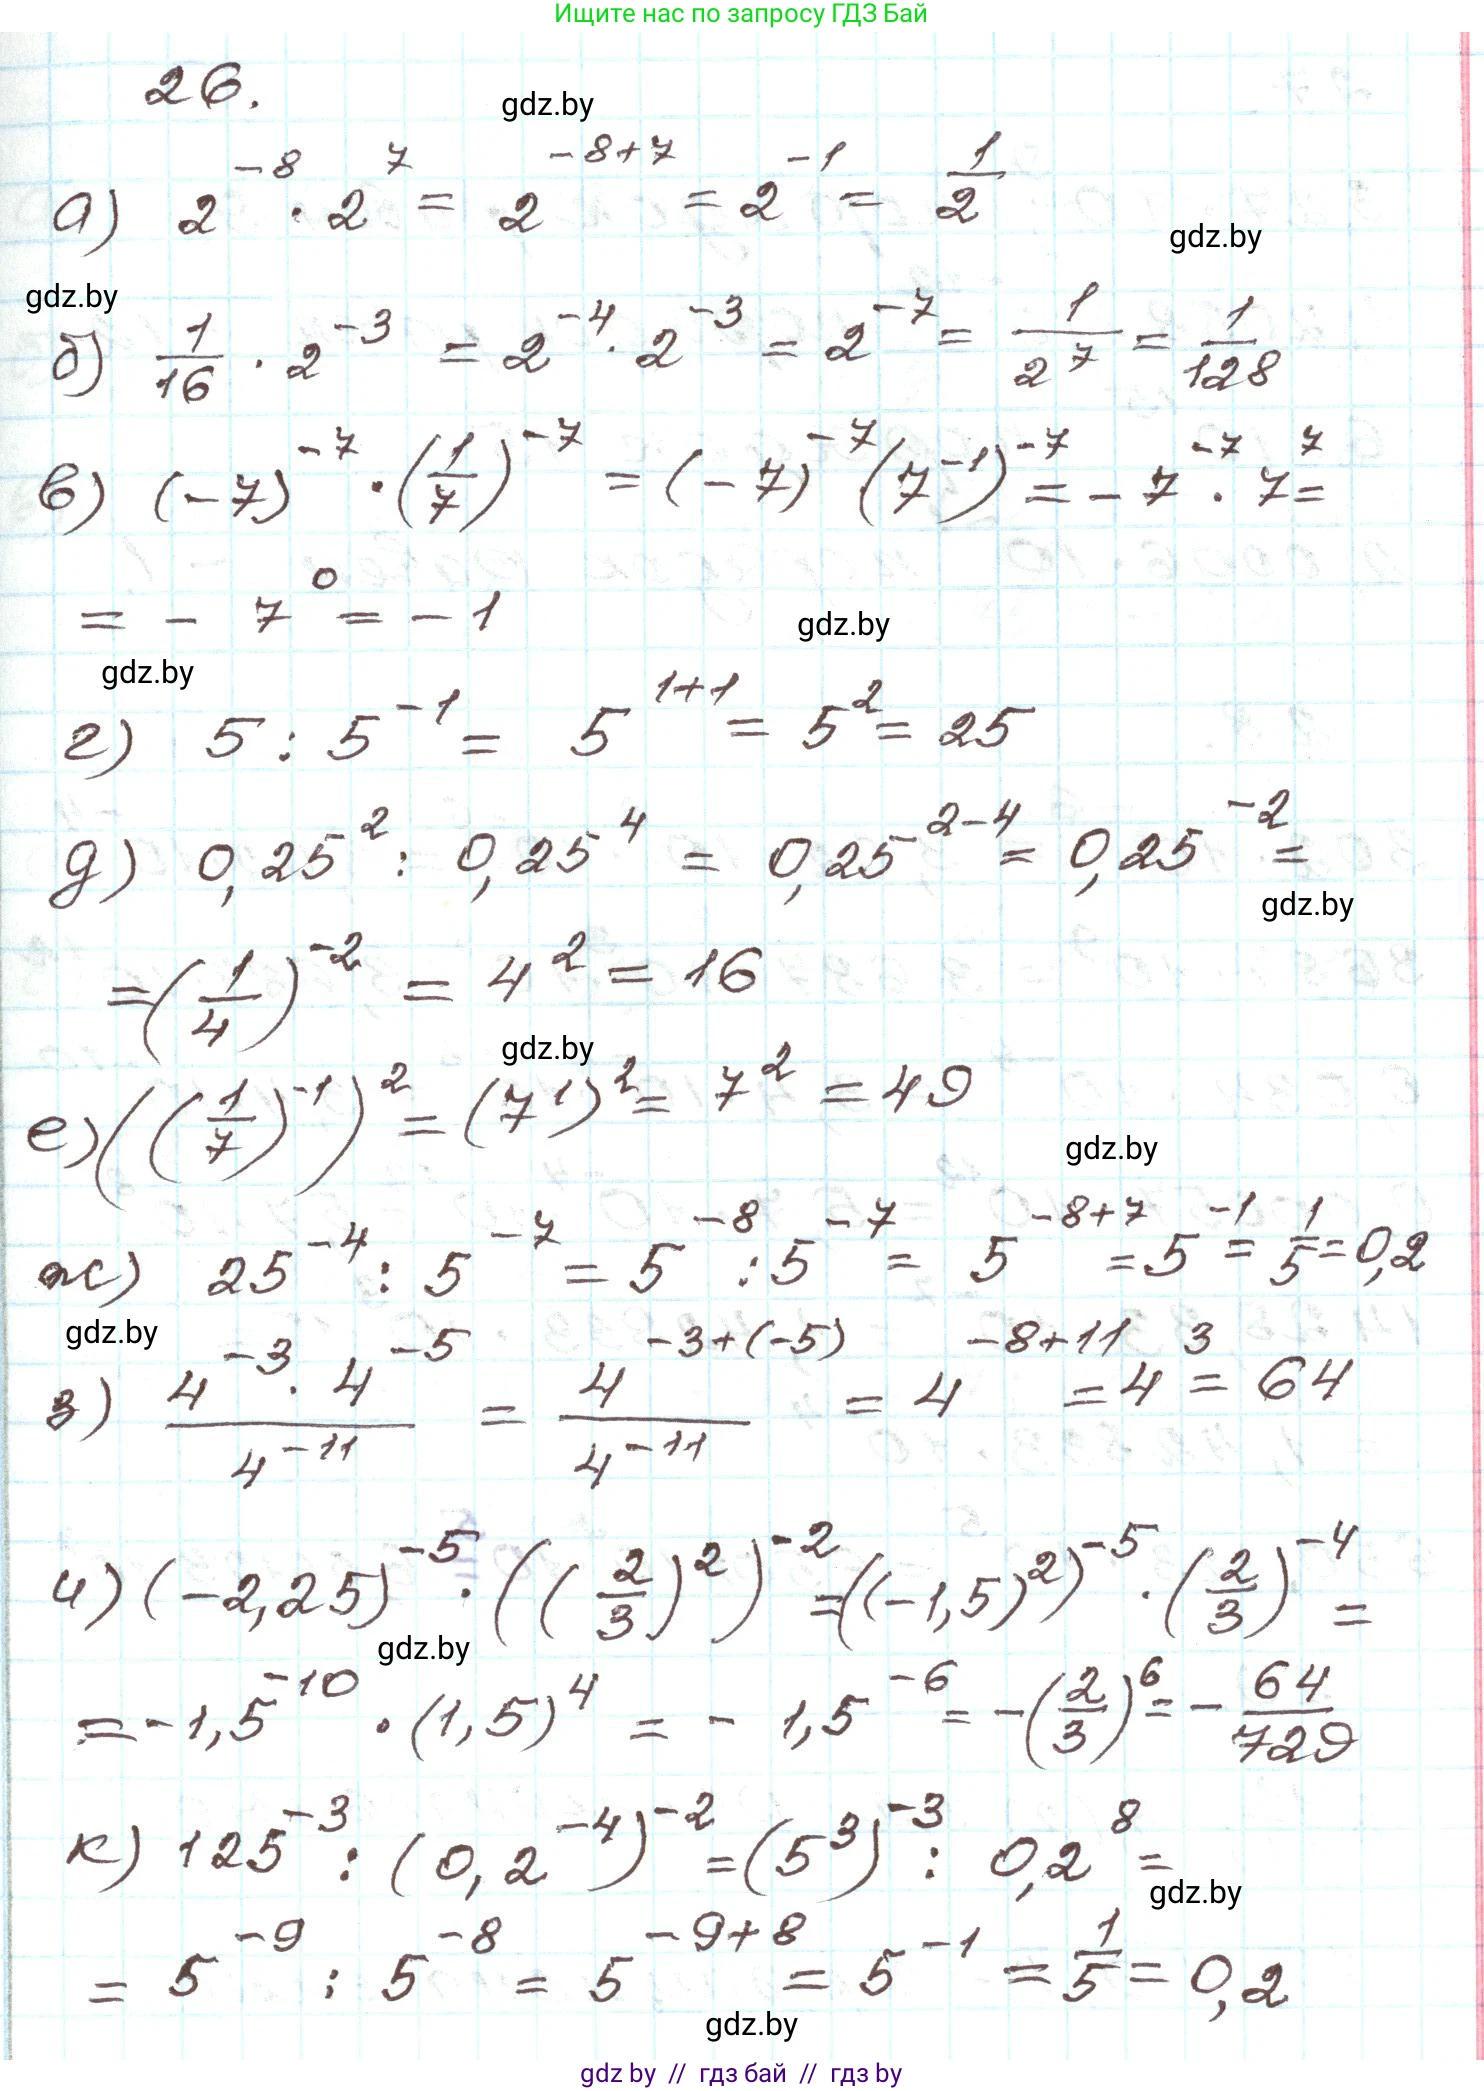 Ищите нас по запросу ГДЗ Бай
26.
gdz.by
а) 2^{-8} · 2^7 = 2^{-8+7} = 2^{-1} = 1/2
gdz.by
gdz.by
б) 1/16 · 2^{-3} = 2^{-4} · 2^{-3} = 2^{-7} = 1/2^7 = 1/128
в) (-7)^{-7} · (1/7)^{-7} = (-7)^{-7} (7^{-1})^{-7} = -7^{-7} · 7^7 =
= -7^0 = -1
gdz.by
gdz.by
г) 5 : 5^{-1} = 5^{1+1} = 5^2 = 25
д) 0,25^2 : 0,25^4 = 0,25^{2-4} = 0,25^{-2} =
gdz.by
= (1/4)^{-2} = 4^2 = 16
gdz.by
е) ((1/7)^{-1})^2 = (7^1)^2 = 7^2 = 49
gdz.by
ж) 25^{-4} : 5^{-7} = 5^{-8} : 5^{-7} = 5^{-8+7} = 5^{-1} = 1/5 = 0,2
gdz.by
з) (4^{-3} · 4^{-5})/4^{-11} = 4^{-3+(-5)}/4^{-11} = 4^{-8+11} = 4^3 = 64
и) (-2,25)^{-5} · ((2/3)^2)^{-2} = ((-1,5)^2)^{-5} · (2/3)^{-4} =
gdz.by
= -1,5^{-10} · (1,5)^4 = -1,5^{-6} = -(2/3)^6 = -64/729
к) 125^{-3} : (0,2^{-4})^{-2} = (5^3)^{-3} : 0,2^8 =
gdz.by
= 5^{-9} : 5^{-8} = 5^{-9+8} = 5^{-1} = 1/5 = 0,2
gdz.by
gdz by // гдз бай // гдз by